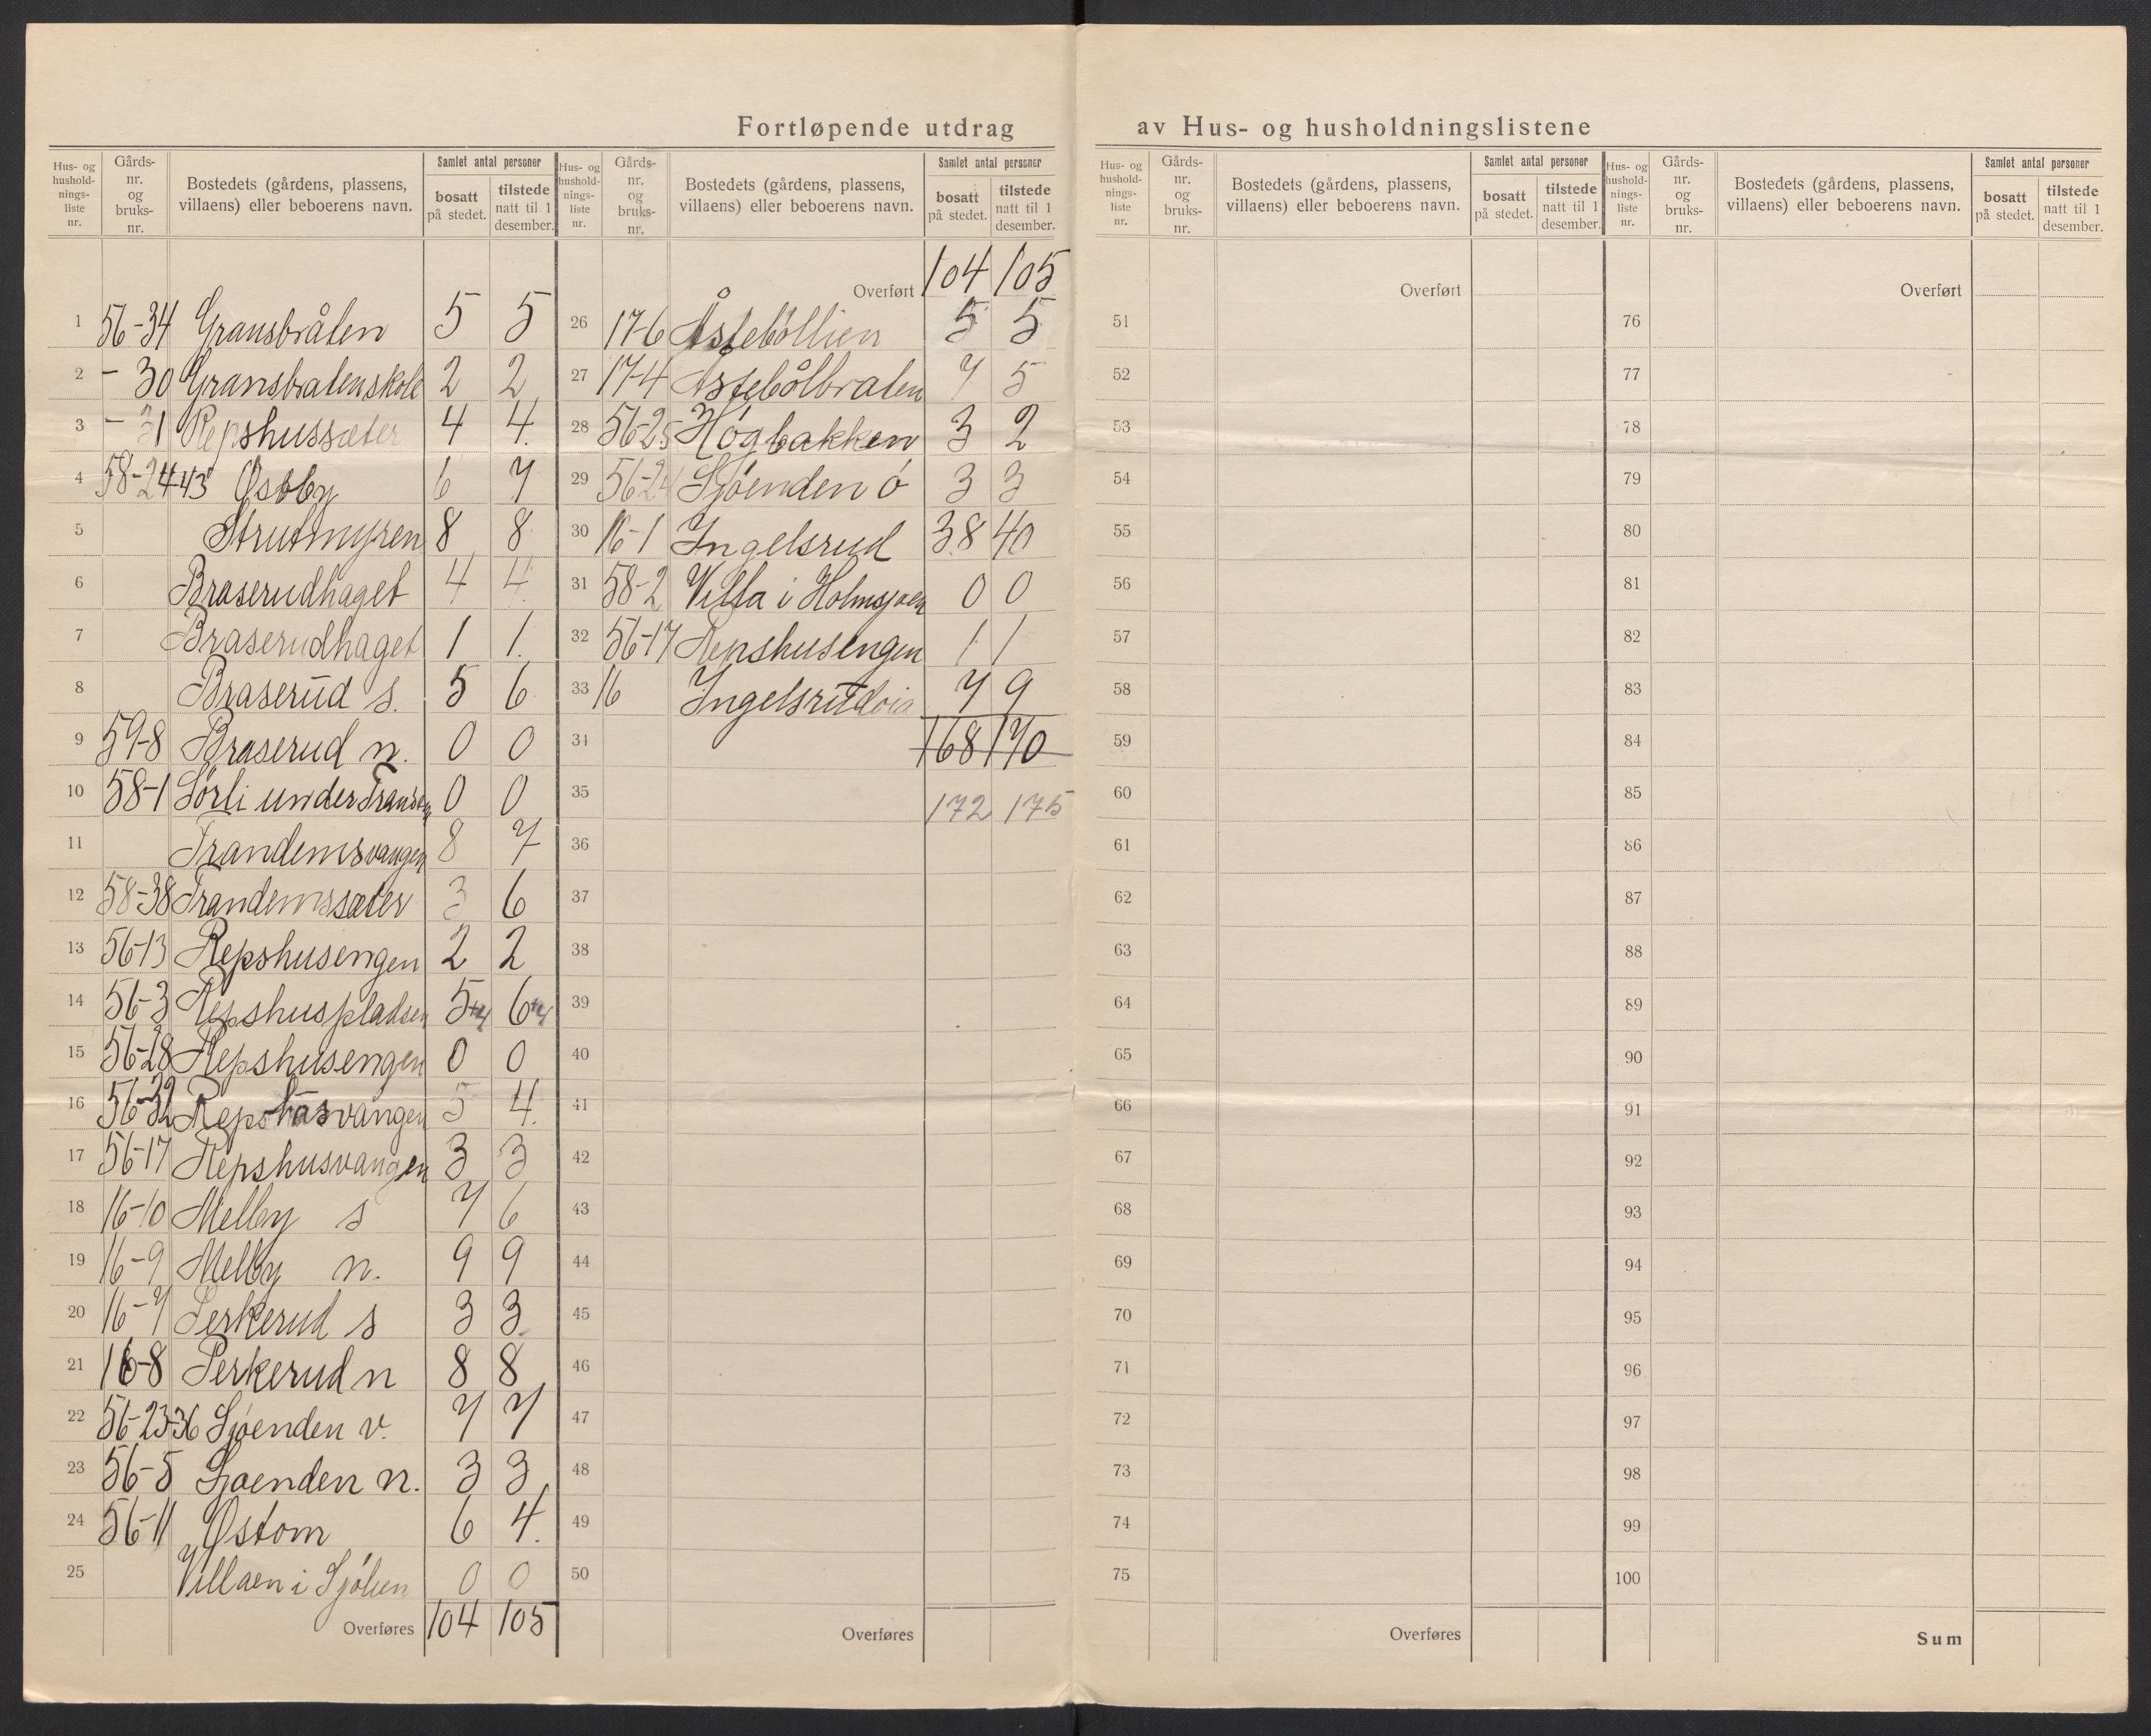 Fortløpende utdrag av Hus- og husholdningslistene
Hus- og hushold-nings-liste nr. | Gårds-nr. og bruks-nr. | Bostedets (gårdens, plassens, villaens) eller beboerens navn. | Samlet antal personer | bosatt på stedet. | tilstede natt til 1 desember.
1 56-34 Gransbråten 5 5
2 - 30 Gransbratenskole 2 2
3 - 31 Repshussæter 4 4.
4 58-24-43 Østby 6 7
5 Strutmyren 8 8
6 Braserudhaget 4 4.
7 Braserudhaget 1 1.
8 Braserud s. 5 6
9 59-8 Braserud n. 0 0
10 58-1 Sørli under 0 0
11 Trandemsvangen 8 7
12 58-38 Trandemssæter 3 6
13 56-13 Repshusengen 2 2
14 56-3 Repshuspladsen 5+4 6+4
15 56-28 Repshusengen 0 0
16 56-32 Repshusvangen 5 4.
17 56-17 Repshusvangen 3 3
18 16-10 Melby s 7 6
19 16-9 Melby n. 9 9
20 16-7 Perkerud s 3 3
21 16-8 Perkerud n 8 8
22 56-23-36 Sjøenden v. 7 7
23 56-5 Sjoenden n. 3 3
24 56-11 Østom 6 4.
25 Villaen i Sjølien 0 0
Overføres 104 105
Hus- og hushold-nings-liste nr. | Gårds-nr. og bruks-nr. | Bostedets (gårdens, plassens, villaens) eller beboerens navn. | Samlet antal personer | bosatt på stedet. | tilstede natt til 1 desember.
Overført 104 105
26 17-6 Åstebøllien 5 5
27 17-4 Astebølbraten 7 5
28 56-25 Høgbakken 3 2
29 56-24 Sjøenden ø 3 3
30 16-1 Ingelsrud 38 40
31 58-2 Villa i Holmsjoen 0 0
32 56-17 Repshusengen 1 1
33 16 Ingelsrud 7 9
34 168 170
35 172 175
36
37
38
39
40
41
42
43
44
45
46
47
48
49
50
Overføres
Hus- og hushold-nings-liste nr. | Gårds-nr. og bruks-nr. | Bostedets (gårdens, plassens, villaens) eller beboerens navn. | Samlet antal personer | bosatt på stedet. | tilstede natt til 1 desember.
Overført
51
52
53
54
55
56
57
58
59
60
61
62
63
64
65
66
67
68
69
70
71
72
73
74
75
Overføres
Hus- og hushold-nings-liste nr. | Gårds-nr. og bruks-nr. | Bostedets (gårdens, plassens, villaens) eller beboerens navn. | Samlet antal personer | bosatt på stedet. | tilstede natt til 1 desember.
Overført
76
77
78
79
80
81
82
83
84
85
86
87
88
89
90
91
92
93
94
95
96
97
98
99
100
Sum